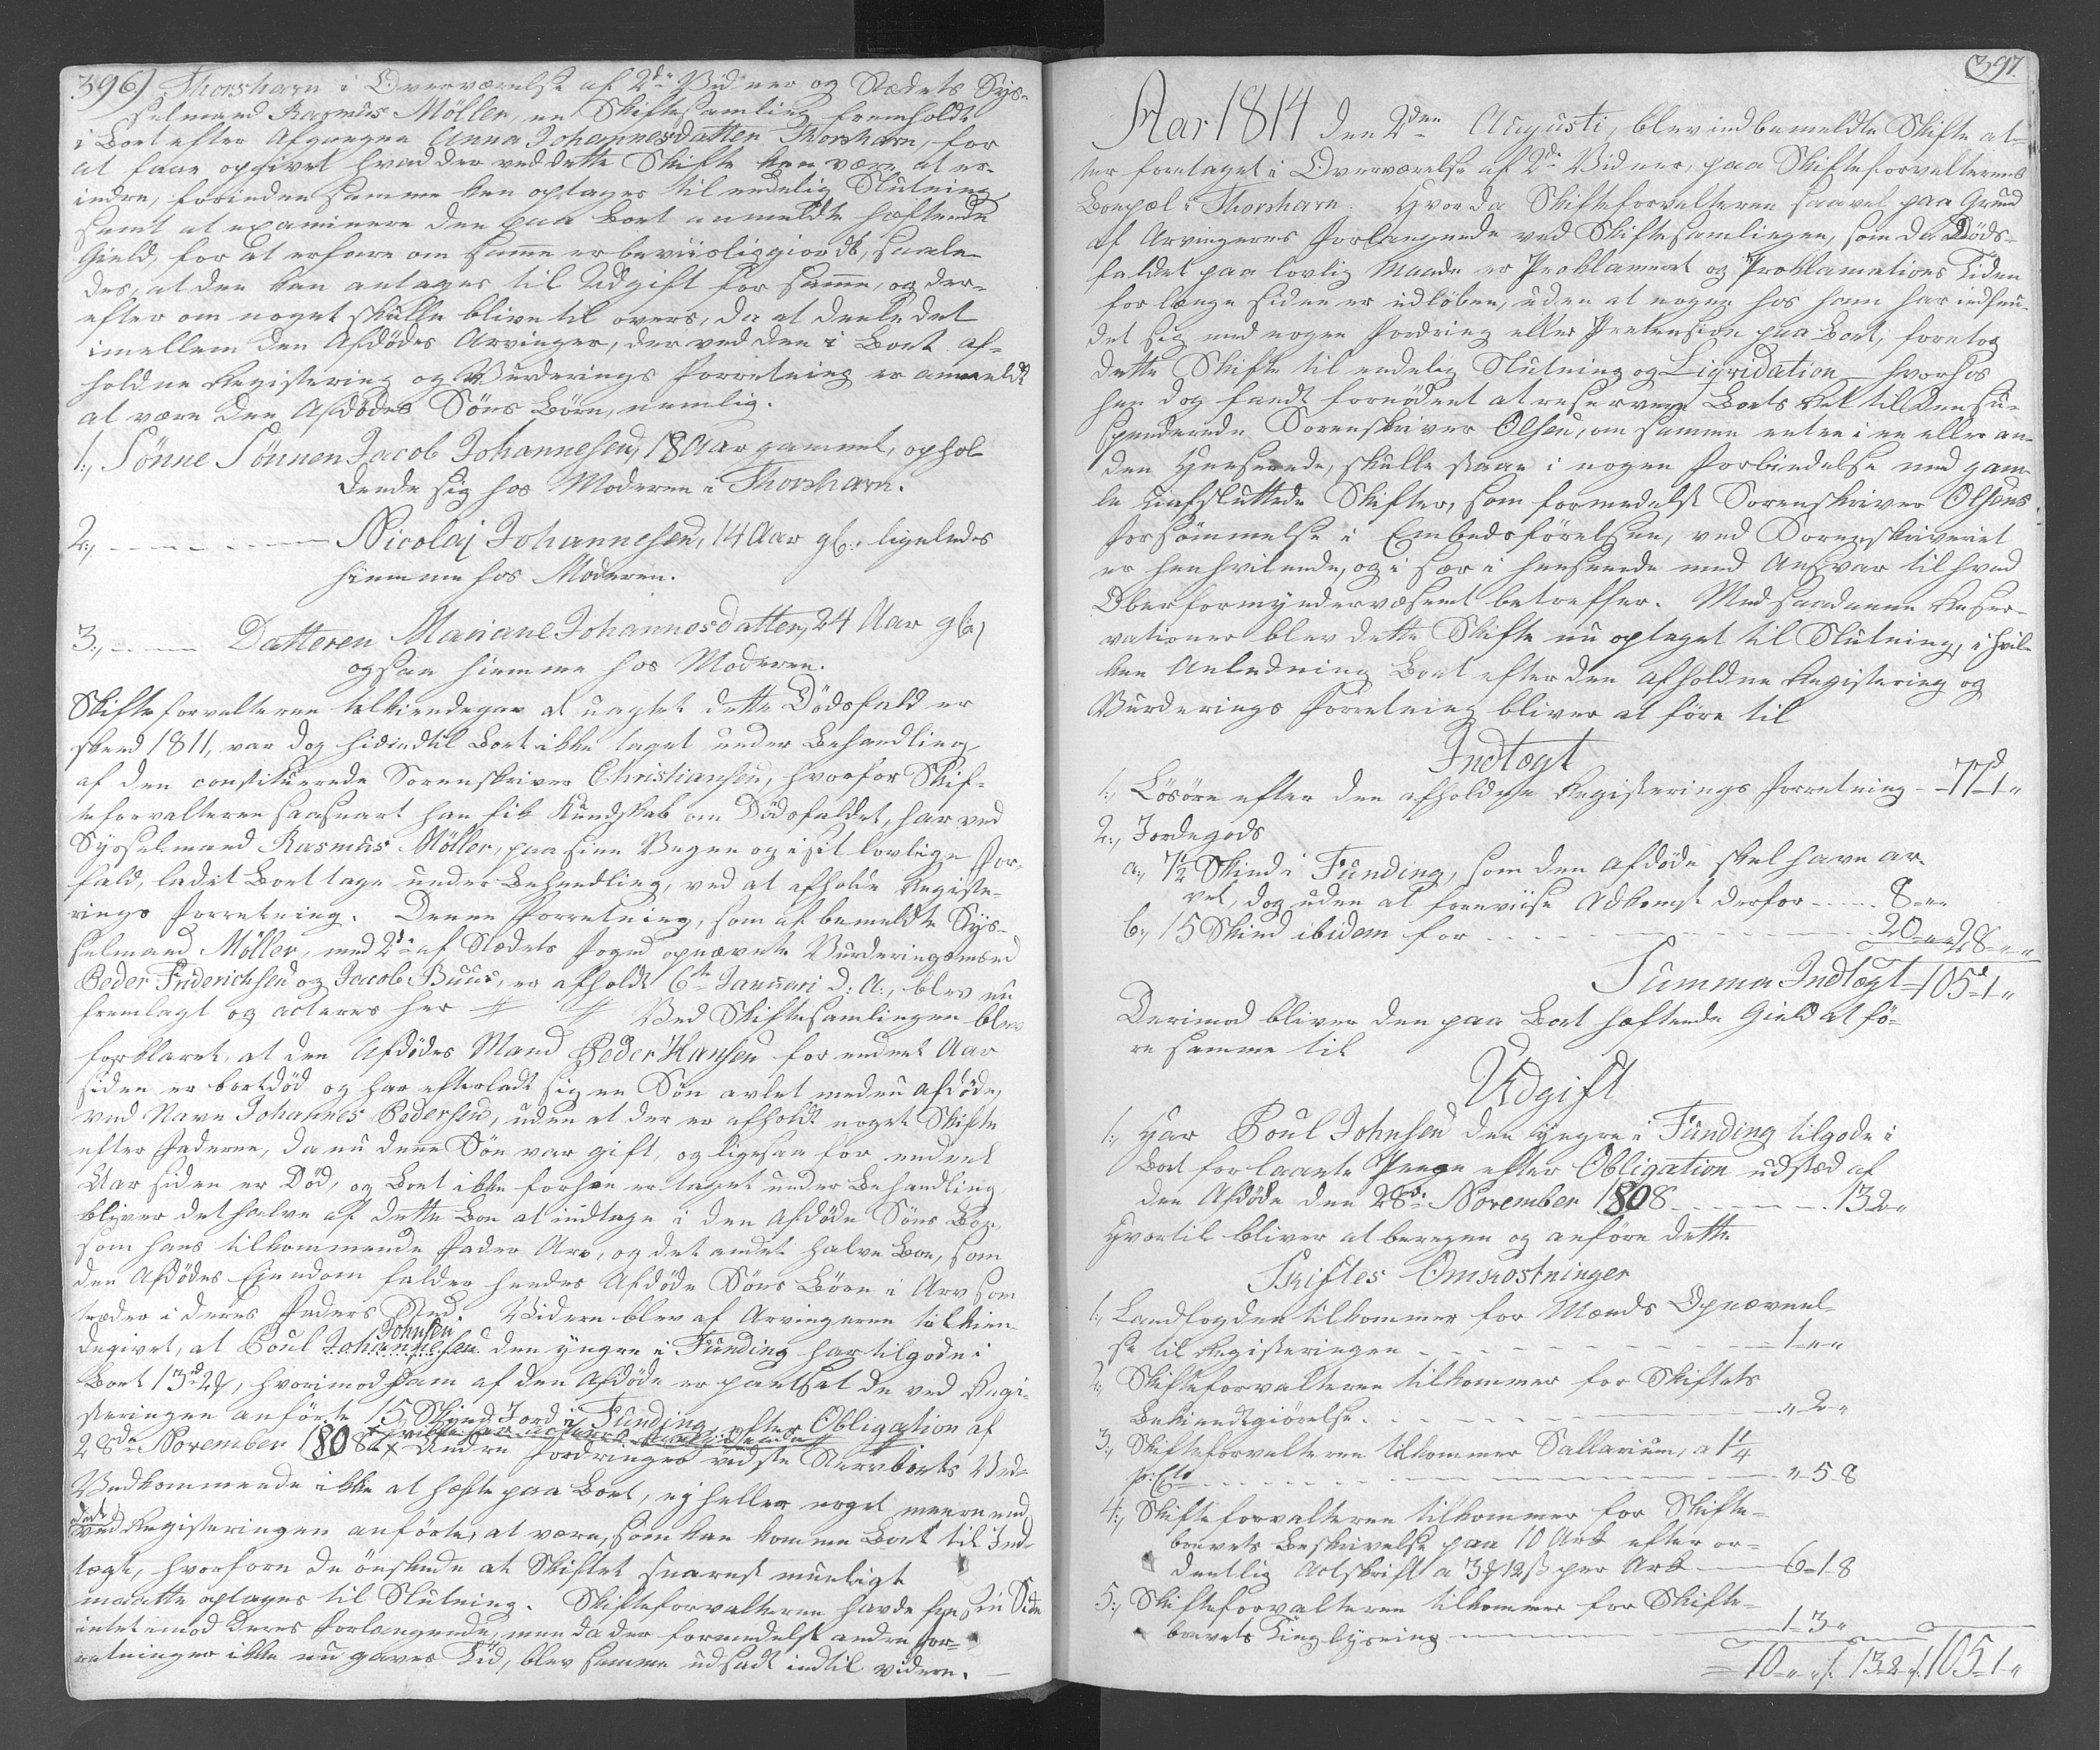 396) Thorshavn i Overværelse af 2de Vidner og Stædets Sys-
selmand Rasmus Möller, en Skiftesamling fremholdt
i Boet efter Afgangne Anna Johannesdatter Thorshavn, for
at faae opgivet hvad der ved dette Skifte kan være at er-
indre, forinden samme kan optages til endelig Slutning
samt at examinere den paa Boet anmeldte hæftende
Gield, for at erfare om samme er beviisliggiordt, saale-
des, at den kan antages til Udgift for samme, og der-
efter om noget skulle blive til overs, da at deele det
imellem den Afdödes Arvinger, der ved den i Boet af-
holdne Registering og Vurderings Forretning er anmeldt
at være den Afdödes Söns Börn, nemlig.
1:, Sönne Sönnen Jacob Johannesen, 18 Aar gammel, ophol-
dende sig hos Moderen i Thorshavn.
2:, – – – – Nicolaj Johannesen, 14 Aar gl:, ligeledes
hiemme hos Moderen.
3:, – – Datteren Mariane Johannesdatter, 24 Aar gl:
ogsaa hiemme hos Moderen.
Skifteforvalteren tilkiendegav at uagtet dette Dödsfald er
skeed 1811, var dog hidindtil Boet ikke taget under Behandling
af den constituerede Sorenskriver Christiansen, hvorfor Skif-
teforvalteren saasnart han fik Kundskab om Dödsfaldet, har ved
Sysselmand Rasmus Möller, paa sine Vegne og i sit lovlige For-
fald, ladet Boet tage under Behandling, ved at afholde Registe-
rings Forretning. Denne Forretning, som af bemeldte Sys-
selmand Möller, med 2de af Stædets Foged opnævnte Vurderingsmænd
Peder Friderichsen og Jacob Buus, er afholdt 6te Januari d: A:, blev nu
fremlagt og acteres her # # Ved Skiftesamlingen blev
forklaret, at den Afdödes Mand Peder Hansen for endeel Aar
siden er bortdöd og har efterladt sig en Sön avlet med en Afdöde,
ved Navn Johannes Pedersen, uden at der er afholdt noget Skifte
efter Faderen, da nu denne Sön var gift, og ligesaa for endeel
Aar siden er Död, og Boet ikke forhen er taget under Behandling,
bliver det halve af dette Boe at indtage i den Afdöde Söns Boe,
som hans tilkommende Fader Arv, og det andet halve Boe, som
den Afdödes Eiendom falder hendes Afdöde Söns Börn i Arv som
træder i deres Faders Sted. Videre blev af Arvingerne tilkien-
Johnsen
degivet, at Poul Johannesen den yngre i Funding har tilgode i
Boet 13rd 2, hvorimod ham af den Afdöde er pantsat de ved Regi-
steringen anförte 15 Skind Jord i Funding, efter Obligation af
28de November 1808. Andre Fordringer vidste Sterbboets Ved-
Vedkommende ikke at hæfte paa Boet, ej heller noget meere end
det
ved Registeringen anförte, at være, som kan komme Boet til Ind-
tægt, hvorfore de önskede at Skiftet snarest mueligt
maatte optages til Slutning. Skifteforvalteren havde paa sin Side
intet imod deres Forlangende, men da der formedelst andre For-
retninger ikke nu gaves Tid, blev samme udsadt indtil videre. –
397
Aar 1814 den 2den Augusti, blev indbemeldte Skifte at-
ter foretaget i Overværelse af 2de Vidner, paa Skifteforvalterens
Boepæl i Thorshavn. Hvorda Skifteforvalteren saavel paa Grund
af Arvingernes Forlangende ved Skiftesamlingen, som da Döds-
faldet paa lovlig Maade er Proklameret og Proklamations Tiden
for længe siden er udlöben, uden at nogen hos ham har indfun-
det sig med nogen Fordring eller Pretension paa Boet, foretog
dette Skifte til endelig Slutning og Liqvidation – hvorhos
han dog fandt fornödent at reservere Boets Ret til den su-
spenderede Sorenskriver Olsen, om samme enten i en eller an-
den Henseende, skulle staae i nogen Forbindelse med gam-
le uafsluttede Skifter, som formedelst Sorenskriver Olsens
Forsömmelse i Embedsförelsen, ved Sorenskriveriet
er henhvilende, og i sær i henseende med Ansvar til hvad
Oberformyndervæsenet betreffer. Med saadanne Reser-
vationer blev dette Skifte nu optaget til Slutning, i hvil-
ken Anledning Boet efter den afholdne Registering og
Vurderings Forretning bliver at före til
Indtægt
1:, Lösöre efter den afholdne Registerings Forretning – 77-1-"
2:, Jordegods
a:, 7½ Skind i Funding, som den Afdöde skal have ar-
vet, dog uden at foreviise Adkomst derfor – – 8-"-"
b:, 15 Skind ibidem for – – – – – 20-"-" 28-"-"
Summa Indtægt 105-1-"
Derimod bliver den paa Boet hæftende Gield at fö-
re samme til
Udgift
1:, Har Poul Johnsen den yngre i Funding tilgode i
Boet for laante Penge efter Obligation udstæd af
den Afdöde den 28de November 1808 – – – – 13-2-"
Hvortil bliver at beregne og anföre dette
Skiftes Omkostninger
1:, Landfogden tilkommer for Mænds Opnævnel-
se til Registeringen – – – – – 1-"-"
2:, Skifteforvalteren tilkommer for Skiftets
Bekiendtgiörelse – – – – – "-2-"
3:, Skifteforvalteren tilkommer Sallarium, a 1¼
pr: Cto – – – – – "-5-8
4:, Skifteforvalteren tilkommer for Skifte-
brevets Beskrivelse paa 10 Ark efter or-
dentlig Actskrift a 3 12 ß per Ark – – 6-1-8
5:, Skifteforvalteren tilkommer for Skifte-
brevets Tinglysning – – – – 1-3-"
10-"-" /: 13-2-" /: 105-1-"